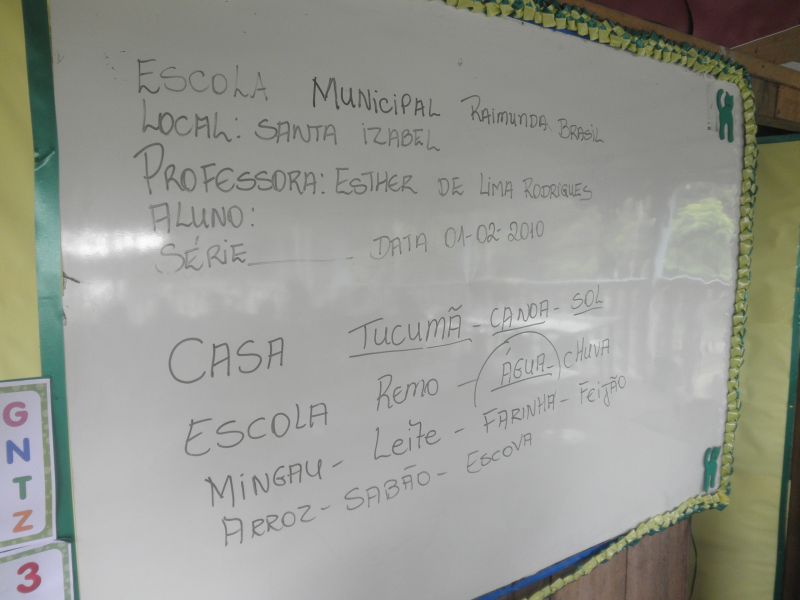 ESCOLA MUNICIPAL RAIMUNDA BRASIL
LOCAL: SANTA IZABEL
PROFESSORA: ESTHER DE LIMA RODRIGUES
ALUNO:
SÉRIE________ DATA 01-02-2010
CASA TUCUMÃ - CANOA - SOL
ESCOLA REMO - ÁGUA - CHUVA
MINGAU - LEITE - FARINHA - FEIJÃO
ARROZ - SABÃO - ESCOVA
G
N
T
Z
3